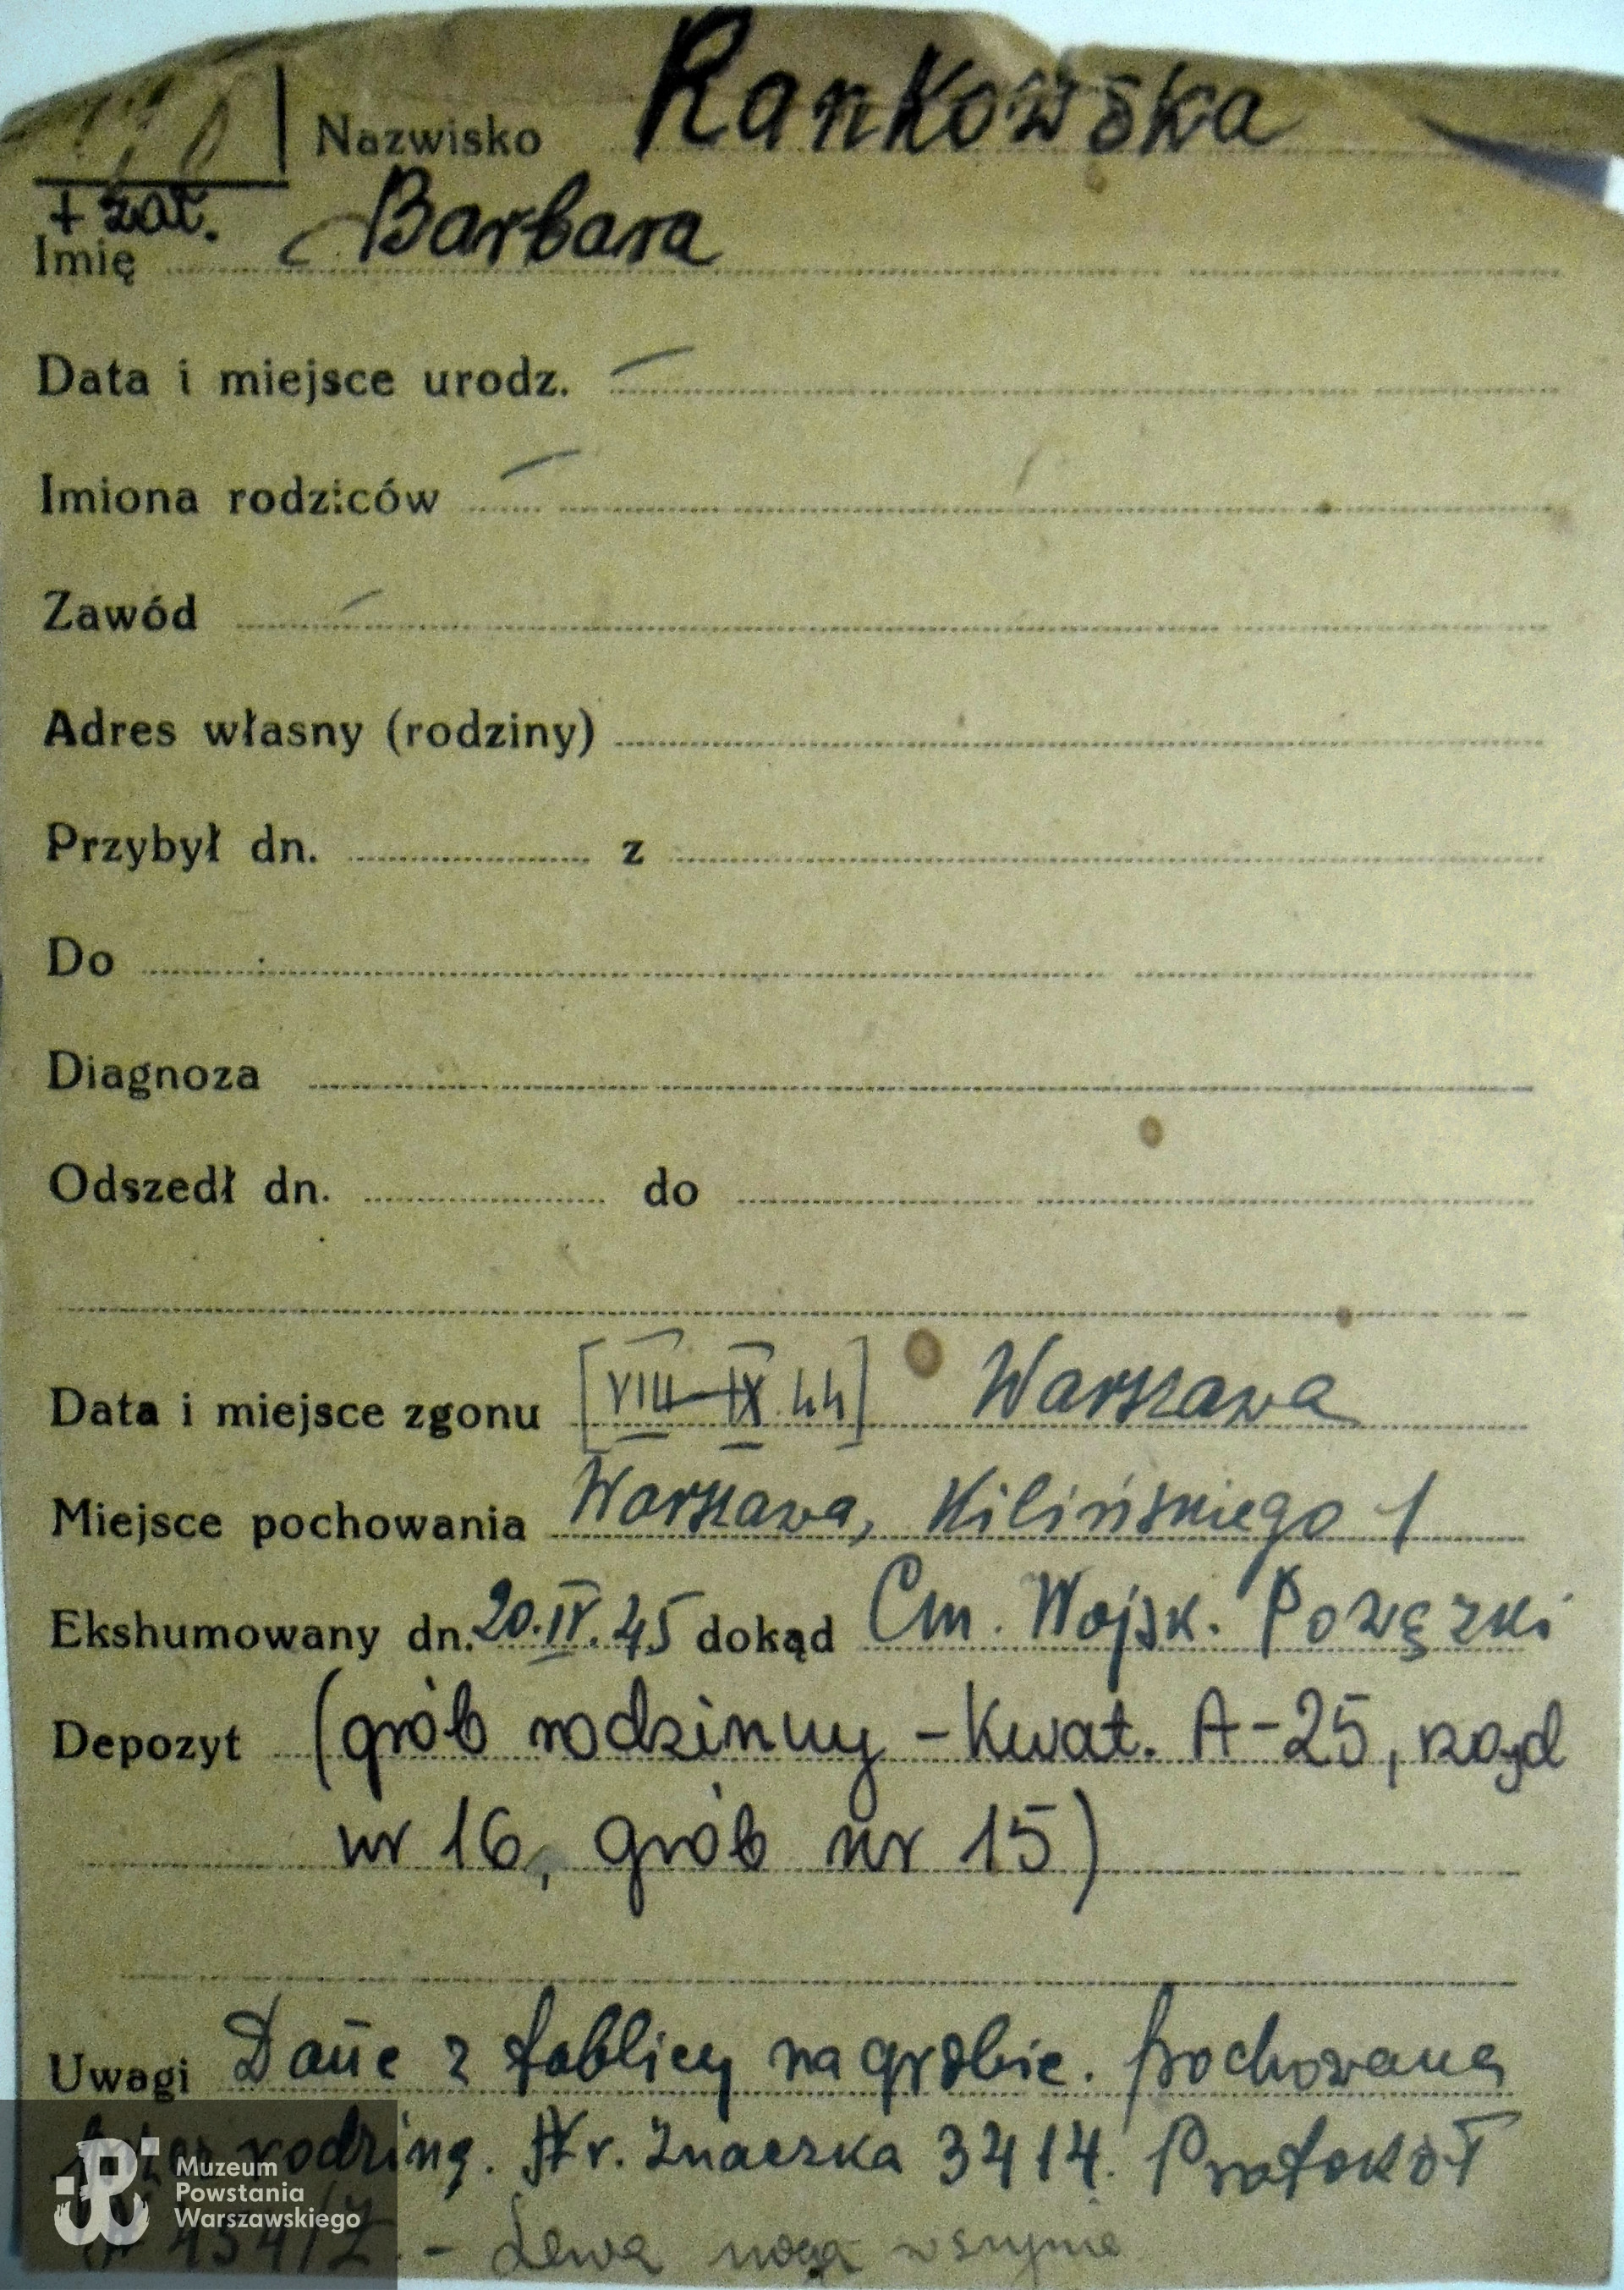 Nazwisko Rankowska
+ zał.
Imię Barbara
Data i miejsce urodz. —
Imiona rodziców —
Zawód —
Adres własny (rodziny)
Przybył dn. z
Do
Diagnoza
Odszedł dn. do
Data i miejsce zgonu [VIII-IX.44] Warszawa
Miejsce pochowania Warszawa, Kilińskiego 1
Ekshumowany dn. 20.IV.45 dokąd Cm. Wojsk. Powązki
Depozyt (grób rodzinny - Kwat. A-25, rząd
nr 16, grób nr 15)
Uwagi Dane z tablicy na grobie. Pochowana
przez rodzinę. Nr. znaczka 3414. Protokół
434/Z. - Lewa noga w szynie
Muzeum
Powstania
Warszawskiego